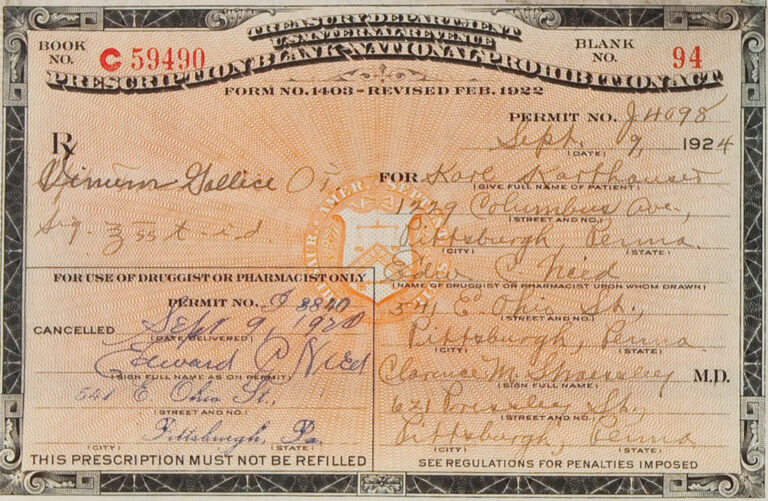 TREASURY DEPARTMENT
U.S. INTERNAL REVENUE
BOOK NO. C 59490
BLANK NO. 94
PRESCRIPTION BLANK-NATIONAL PROHIBITION ACT
FORM NO. 1403-REVISED FEB. 1922
PERMIT NO. J 4098
Sept. 9, 1924
(DATE)
℞
Gallice
Sig. t-i-d.
FOR Karl Karthauser
(GIVE FULL NAME OF PATIENT)
1229 Columbus Ave.,
(STREET AND NO.)
Pittsburgh, Penna.
(CITY) (STATE)
Edw C. Nied
(NAME OF DRUGGIST OR PHARMACIST UPON WHOM DRAWN)
541 E. Ohio St.
(STREET AND NO.)
Pittsburgh, Penna.
(CITY) (STATE)
Clarence M. M.D.
(SIGN FULL NAME)
621 Pressley St.
(STREET AND NO.)
Pittsburgh, Penna
(CITY) (STATE)
SEE REGULATIONS FOR PENALTIES IMPOSED
FOR USE OF DRUGGIST OR PHARMACIST ONLY
PERMIT NO. 8840
CANCELLED Sept 9, 192
(DATE DELIVERED)
Edward C Nied
(SIGN FULL NAME AS ON PERMIT)
541 E. Ohio St.,
(STREET AND NO.)
Pittsburgh, Pa.
(CITY) (STATE)
THIS PRESCRIPTION MUST NOT BE REFILLED